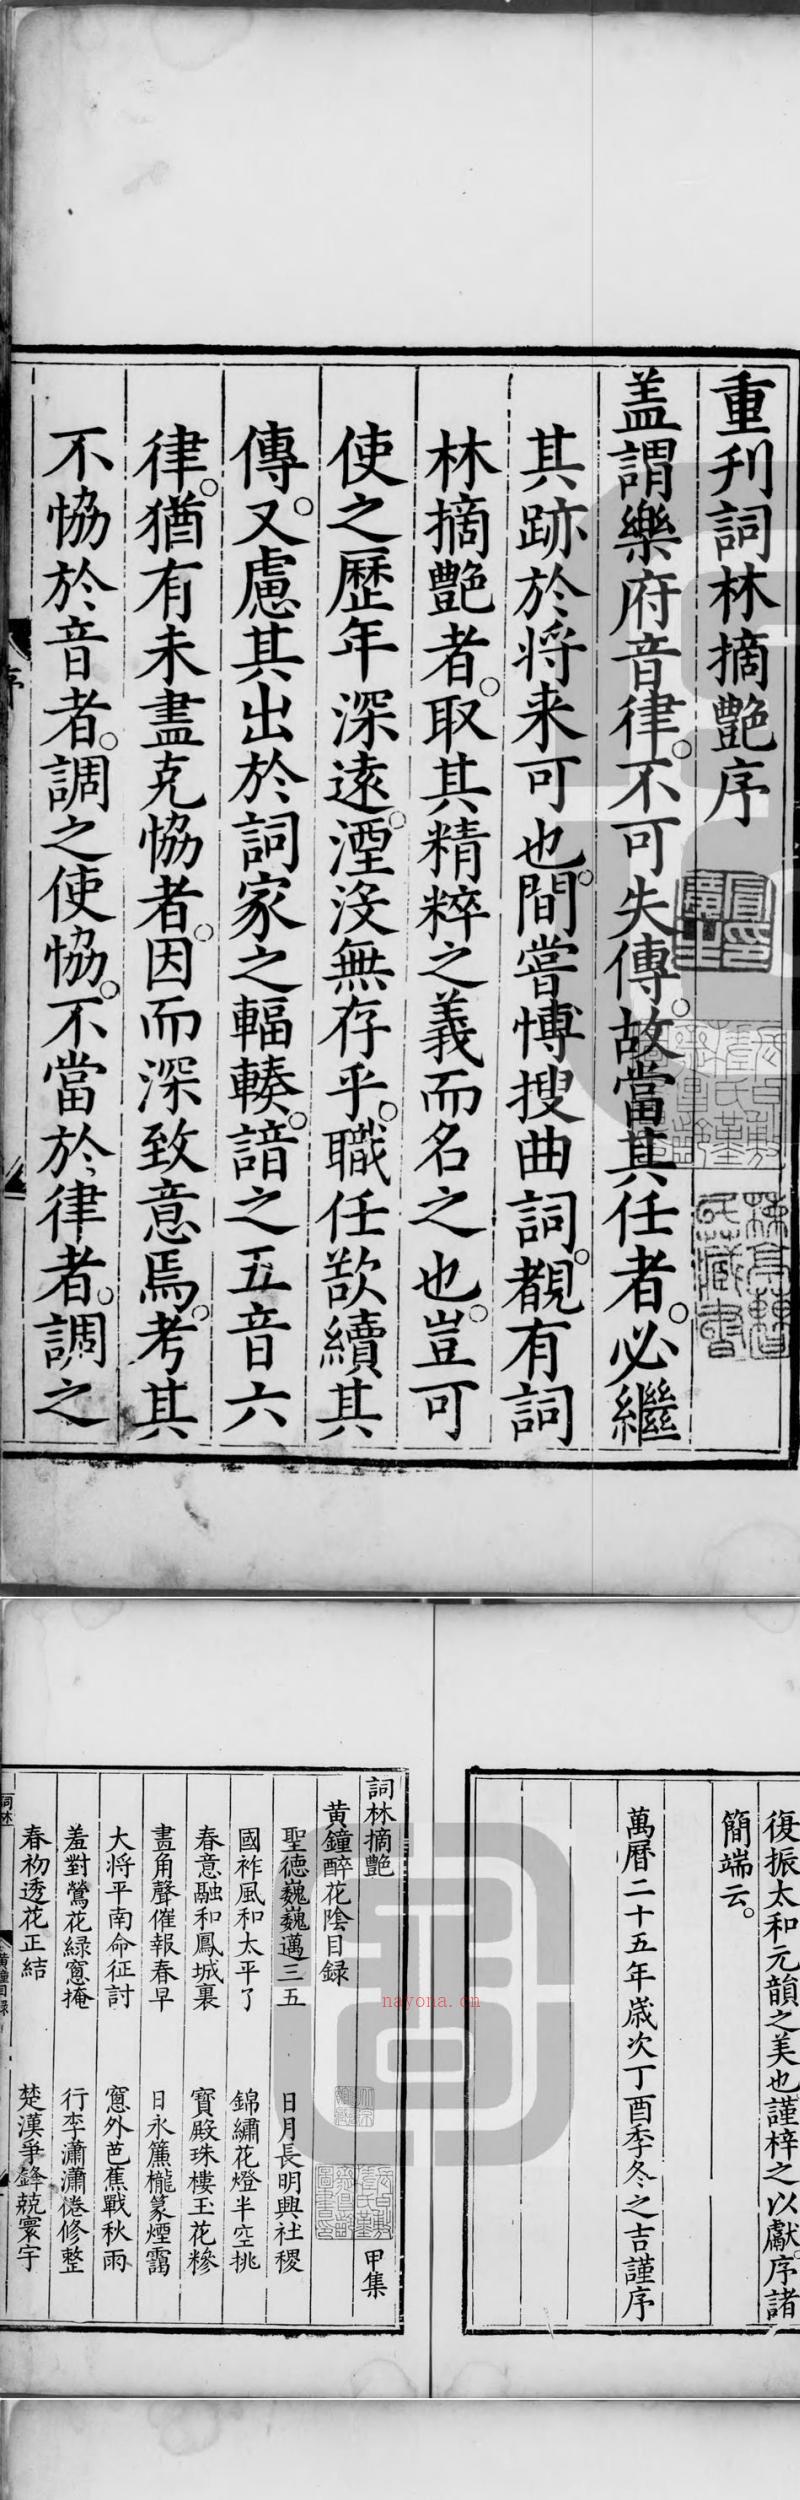 重刋詞林摘艶序
盖謂樂府音律。不可失傳。故當其任者。必繼
其跡於将来可也。間嘗愽搜曲詞。覩有詞
林摘艶者。取其精粹之義而名之也。豈可
使之歷年深遠。湮没無存乎。職任欲續其
傳。又慮其出於詞家之輻輳。諳之五音六
律。猶有未盡克恊者。因而深致意焉。考其
不恊於音者。調之使恊。不當於律者。調之
序
復振太和元韻之美也謹梓之以獻。序諸
簡端云。
萬曆二十五年歲次丁酉季冬之吉謹序
詞林摘艶 甲集
黄鐘醉花陰目録
聖德巍巍邁三五 日月長明興社稷
國祚風和太平了 錦繡花燈半空挑
春意融和鳳城裏 寳殿珠樓玉花糝
畫角聲催報春早 日永簾櫳篆煙靄
大将平南命征討 窻外芭蕉戰秋雨
羞對鶯花緑窻掩 行李瀟瀟倦修整
春初透花正結 楚漢爭鋒競寰宇
詞林
黄鐘目録
nayona.cn